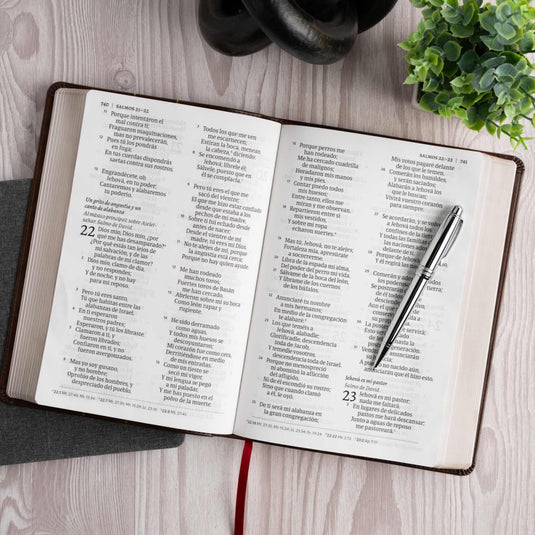 740 | SALMOS 21–22
11 Porque intentaron el
mal contra ti;
Fraguaron maquinaciones,
mas no prevalecerán,
12 Pues tú los pondrás
en fuga;
En tus cuerdas dispondrás
saetas contra sus rostros.
13 Engrandécete, oh
Jehová, en tu poder;
Cantaremos y alabaremos
tu poderío.
Un grito de angustia y un
canto de alabanza
Al músico principal; sobre Ajelet-
sahar. Salmo de David.
22 Dios mío, Dios mío, ¿por
qué me has desamparado?
¿Por qué estás tan lejos de
mi salvación, y de las
palabras de mi clamor?
2 Dios mío, clamo de día,
y no respondes;
Y de noche, y no hay
para mí reposo.
3 Pero tú eres santo,
Tú que habitas entre las
alabanzas de Israel.
4 En ti esperaron
nuestros padres;
Esperaron, y tú los libraste.
5 Clamaron a ti, y
fueron librados;
Confiaron en ti, y no
fueron avergonzados.
6 Mas yo soy gusano,
y no hombre;
Oprobio de los hombres, y
despreciado del pueblo.
7 Todos los que me ven
me escarnecen;
Estiran la boca, menean
la cabeza, diciendo:
8 Se encomendó a
Jehová; líbrele él;
Sálvele, puesto que en
él se complacía.
9 Pero tú eres el que me
sacó del vientre;
El que me hizo estar confiado
desde que estaba a los
pechos de mi madre.
10 Sobre ti fui echado desde
antes de nacer;
Desde el vientre de mi
madre, tú eres mi Dios.
11 No te alejes de mí, porque
la angustia está cerca;
Porque no hay quien ayude.
12 Me han rodeado
muchos toros;
Fuertes toros de Basán
me han cercado.
13 Abrieron sobre mí su boca
Como león rapaz y
rugiente.
14 He sido derramado
como aguas,
Y todos mis huesos se
descoyuntaron;
Mi corazón fue como cera,
Derritiéndose en medio
de mis entrañas.
15 Como un tiesto se
secó mi vigor,
Y mi lengua se pegó
a mi paladar,
Y me has puesto en el
polvo de la muerte.
SALMOS 22–23 | 741
16 Porque perros me
han rodeado;
Me ha cercado cuadrilla
de malignos;
Horadaron mis manos
y mis pies.
17 Contar puedo todos
mis huesos;
Entre tanto, ellos me
miran y me observan.
18 Repartieron entre sí
mis vestidos,
Y sobre mi ropa
echaron suertes.
19 Mas tú, Jehová, no te alejes;
Fortaleza mía, apresúrate
a socorrerme.
20 Libra de la espada mi alma,
Del poder del perro mi vida.
21 Sálvame de la boca del león,
Y líbrame de los cuernos
de los búfalos.
22 Anunciaré tu nombre
a mis hermanos;
En medio de la congregación
te alabaré.
23 Los que teméis a
Jehová, alabadle;
Glorificadle, descendencia
toda de Jacob,
Y temedle vosotros,
descendencia toda de Israel.
24 Porque no menospreció
ni abominó la aflicción
del afligido,
Ni de él escondió su rostro;
Sino que cuando clamó
a él, le oyó.
25 De ti será mi alabanza en
la gran congregación;
Mis votos pagaré delante
de los que le temen.
26 Comerán los humildes,
y serán saciados;
Alabarán a Jehová los
que le buscan;
Vivirá vuestro corazón
para siempre.
Jehová es mi pastor
Salmo de David.
23 Jehová es mi pastor;
nada me faltará.
2 En lugares de delicados
pastos me hará descansar;
Junto a aguas de reposo
me pastoreará.